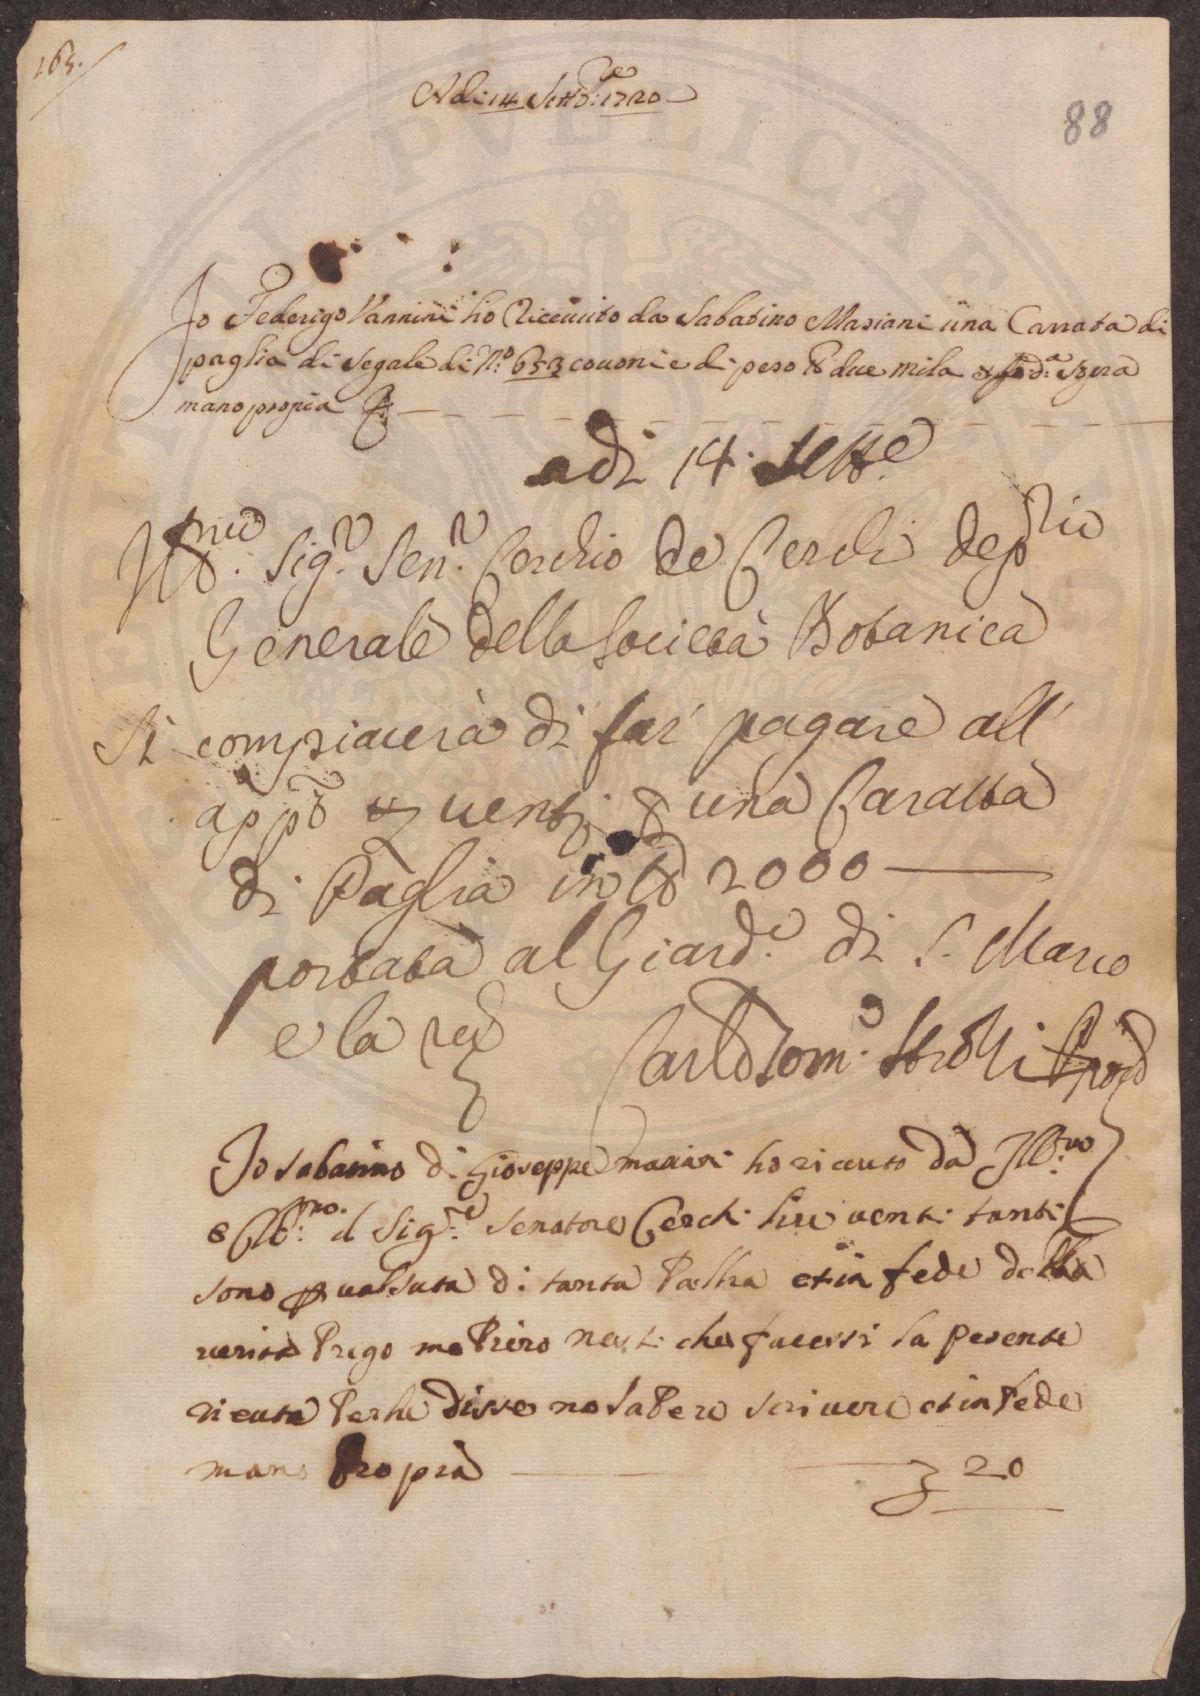 165.
88
Adi: 14 Settb:re 1720
Io Federigo Vannini ho Riceuuto da Sabatino Mariani una Carrata di
paglia di segale di N.o 653 couoni e di peso lb due mila
mano propria
adi 14. Sett.e
Ill.mo Sig.r Sen.r Cerchio de Cerchi dep.rio
Generale della Società Botanica
Si compiacerà di far pagare all'
app.o venti p una Caratta
di Paglia in lb 2000
portata al Giard.o di S. Marco
e la
Carlo Tom.o
Io Sabatino di Gioseppe Mariani ho riceuto da Ill:mo
e Cl:mo il Sig:re Senatore Cerchi lire venti tanti
sono p ualsuta di tanta Paglia et in fede della
uerita Prego me Piero che facessi la presente
riceuta Perhe disse no saPere scriuere et in fede
mano Propria 20